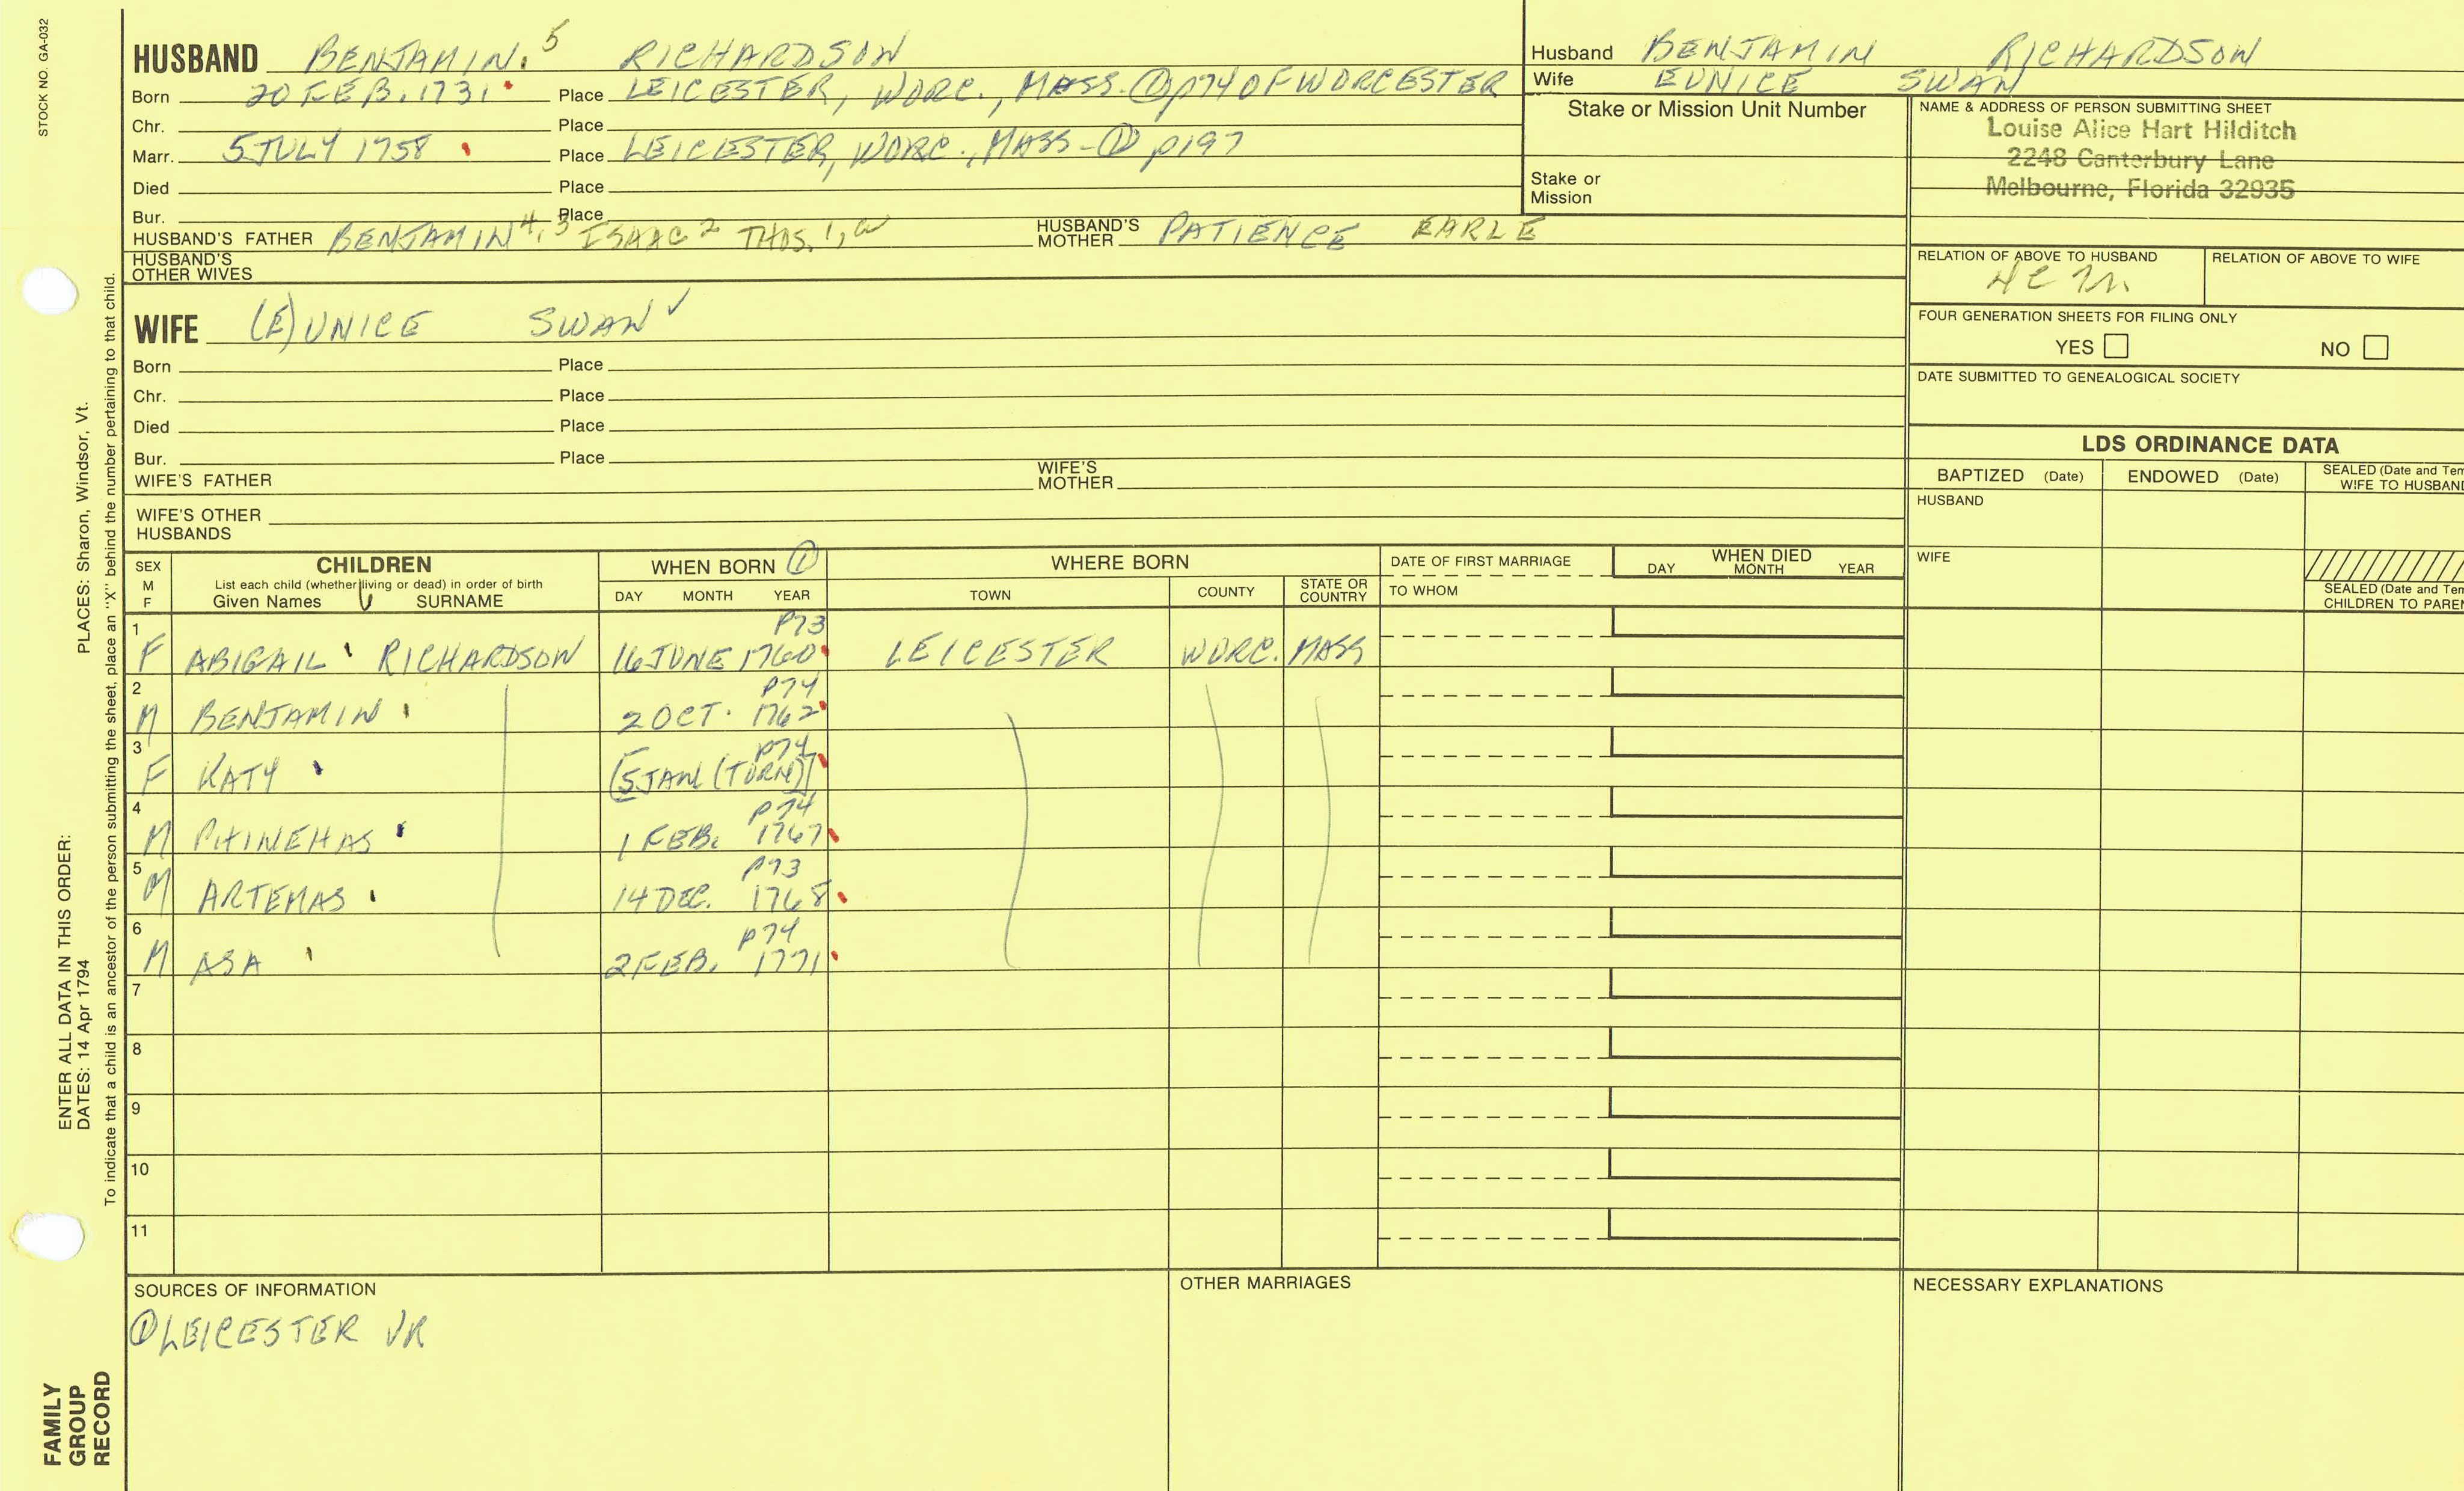 STOCK NO. GA-032
HUSBAND BENJAMIN. 5 RICHARDSON
Born 20 FEB. 1731 Place LEICESTER, WORC., MASS. ① p174 OF WORCESTER
Chr. Place
Marr. 5 JULY 1758 Place LEICESTER, WORC., MASS - ① p197
Died Place
Bur. Place
HUSBAND'S FATHER BENJAMIN 4, 3 ISAAC 2 THOS. 1, a HUSBAND'S MOTHER PATIENCE EARLE
HUSBAND'S OTHER WIVES
Husband BENJAMIN RICHARDSON
Wife EUNICE SWAN
Stake or Mission Unit Number
Stake or Mission
NAME & ADDRESS OF PERSON SUBMITTING SHEET
Louise Alice Hart Hilditch
2248 Canterbury Lane
Melbourne, Florida 32935
RELATION OF ABOVE TO HUSBAND
RELATION OF ABOVE TO WIFE
FOUR GENERATION SHEETS FOR FILING ONLY
YES NO
DATE SUBMITTED TO GENEALOGICAL SOCIETY
WIFE (E)UNICE SWAN ✓
Born Place
Chr. Place
Died Place
Bur. Place
WIFE'S FATHER WIFE'S MOTHER
WIFE'S OTHER HUSBANDS
LDS ORDINANCE DATA
BAPTIZED (Date) ENDOWED (Date) SEALED (Date and Tem
WIFE TO HUSBAND
HUSBAND
WIFE
SEALED (Date and Tem
CHILDREN TO PAREN
SEX M F
CHILDREN
List each child (whether living or dead) in order of birth
Given Names SURNAME
WHEN BORN ①
DAY MONTH YEAR
WHERE BORN
TOWN COUNTY STATE OR COUNTRY
DATE OF FIRST MARRIAGE
TO WHOM
WHEN DIED
DAY MONTH YEAR
1 P73
F ABIGAIL RICHARDSON 16 JUNE 1760 LEICESTER WORC. MASS
2 P74
M BENJAMIN 2 OCT. 1762
3 P74
F KATY (5 JAN (TORN)
4 P74
M PHINEHAS 1 FEB. 1767
5 P73
M ARTEMAS 14 DEC. 1768
6 P74
M ASA 2 FEB. 1771
7
8
9
10
11
SOURCES OF INFORMATION
① LEICESTER VR
OTHER MARRIAGES
NECESSARY EXPLANATIONS
ENTER ALL DATA IN THIS ORDER:
DATES: 14 Apr 1794 PLACES: Sharon, Windsor, Vt.
To indicate that a child is an ancestor of the person submitting the sheet, place an "X" behind the number pertaining to that child.
FAMILY
GROUP
RECORD